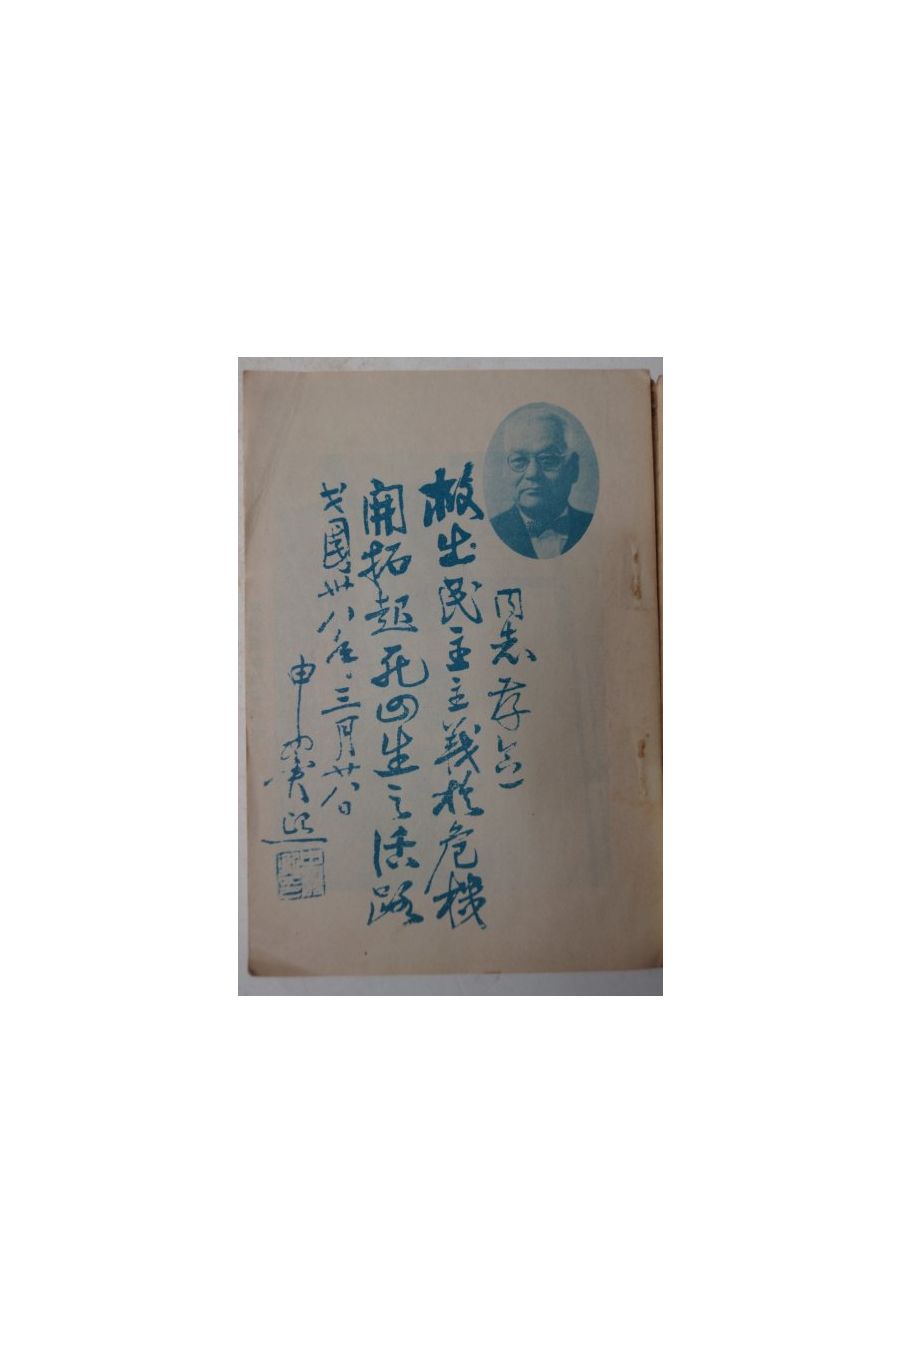 同志存念
救出民主主義於危機
開拓起死回生之活路
民國卅八年、三月廿八日
申翼熙